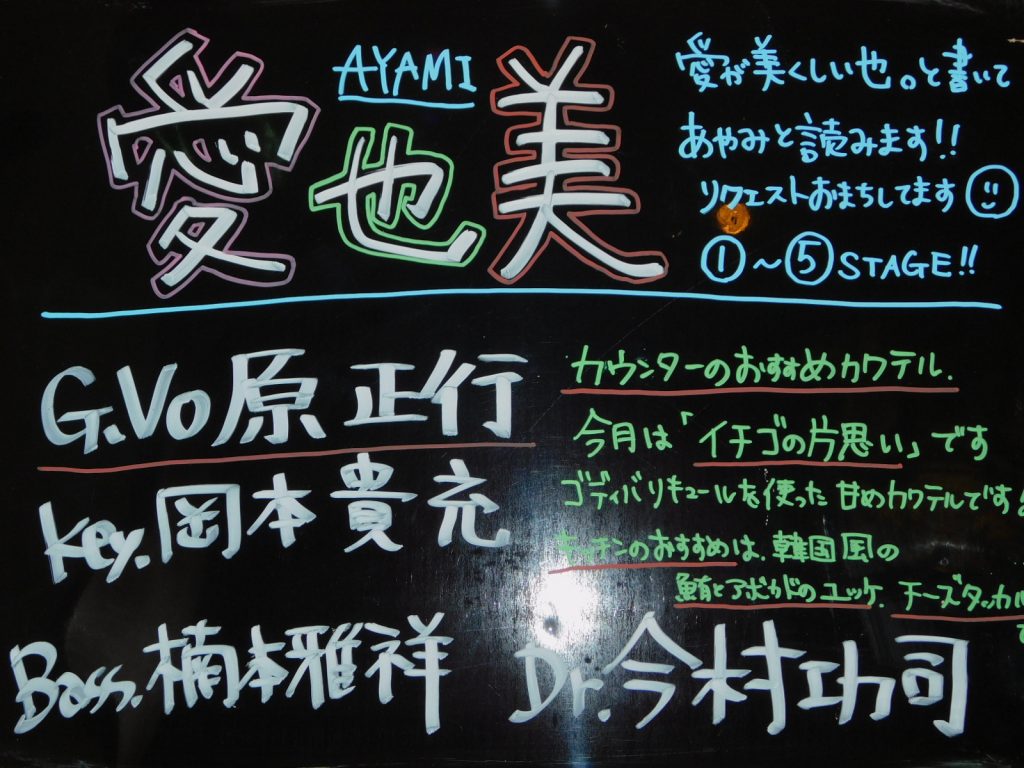 愛也美
AYAMI
愛が美くしい也。と書いて
あやみと読みます!!
リクエストおまちしてます
①~⑤STAGE!!
G.Vo 原 正行
カウンターのおすすめカクテル.
今月は「イチゴの片思い」です
ゴディバリキュールを使った甘めカクテルです
Key. 岡本 貴充
キッチンのおすすめは、韓国風の
鮪とアボカドのユッケ、チーズタッカル
Bass. 楠本雅祥
Dr. 今村功司